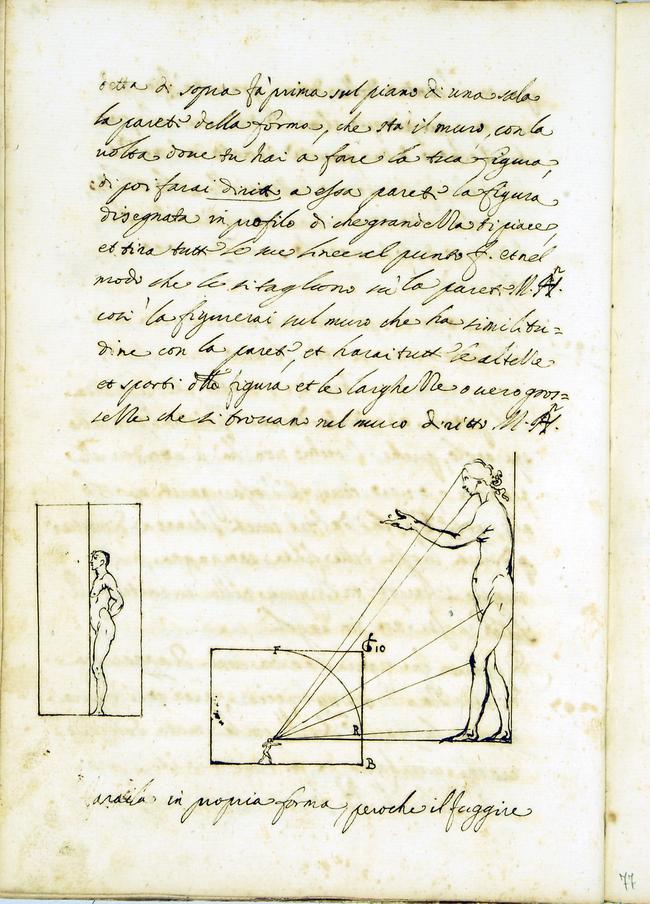 detta di sopra fà prima sul piano di una sala
la pareti della forma, che sta il muro, con la
volta dove tu hai a fare la tua figura,
di poi farai diritto a essa pareti la figura
disegnata in profilo di che grandezza ti piace,
et tira tutte le sue linee al punto f. et nel
modo che le si tagliono sù la pareti M.
così la figurerai sul muro che ha similitu=
dine con la pareti, et harai tutte le altezze
et sporti della figura et le larghezze overo gros=
sezze che si trovano nel muro diritto M.
F
G 10
R
B
in propria forma, peroche il fuggire
77